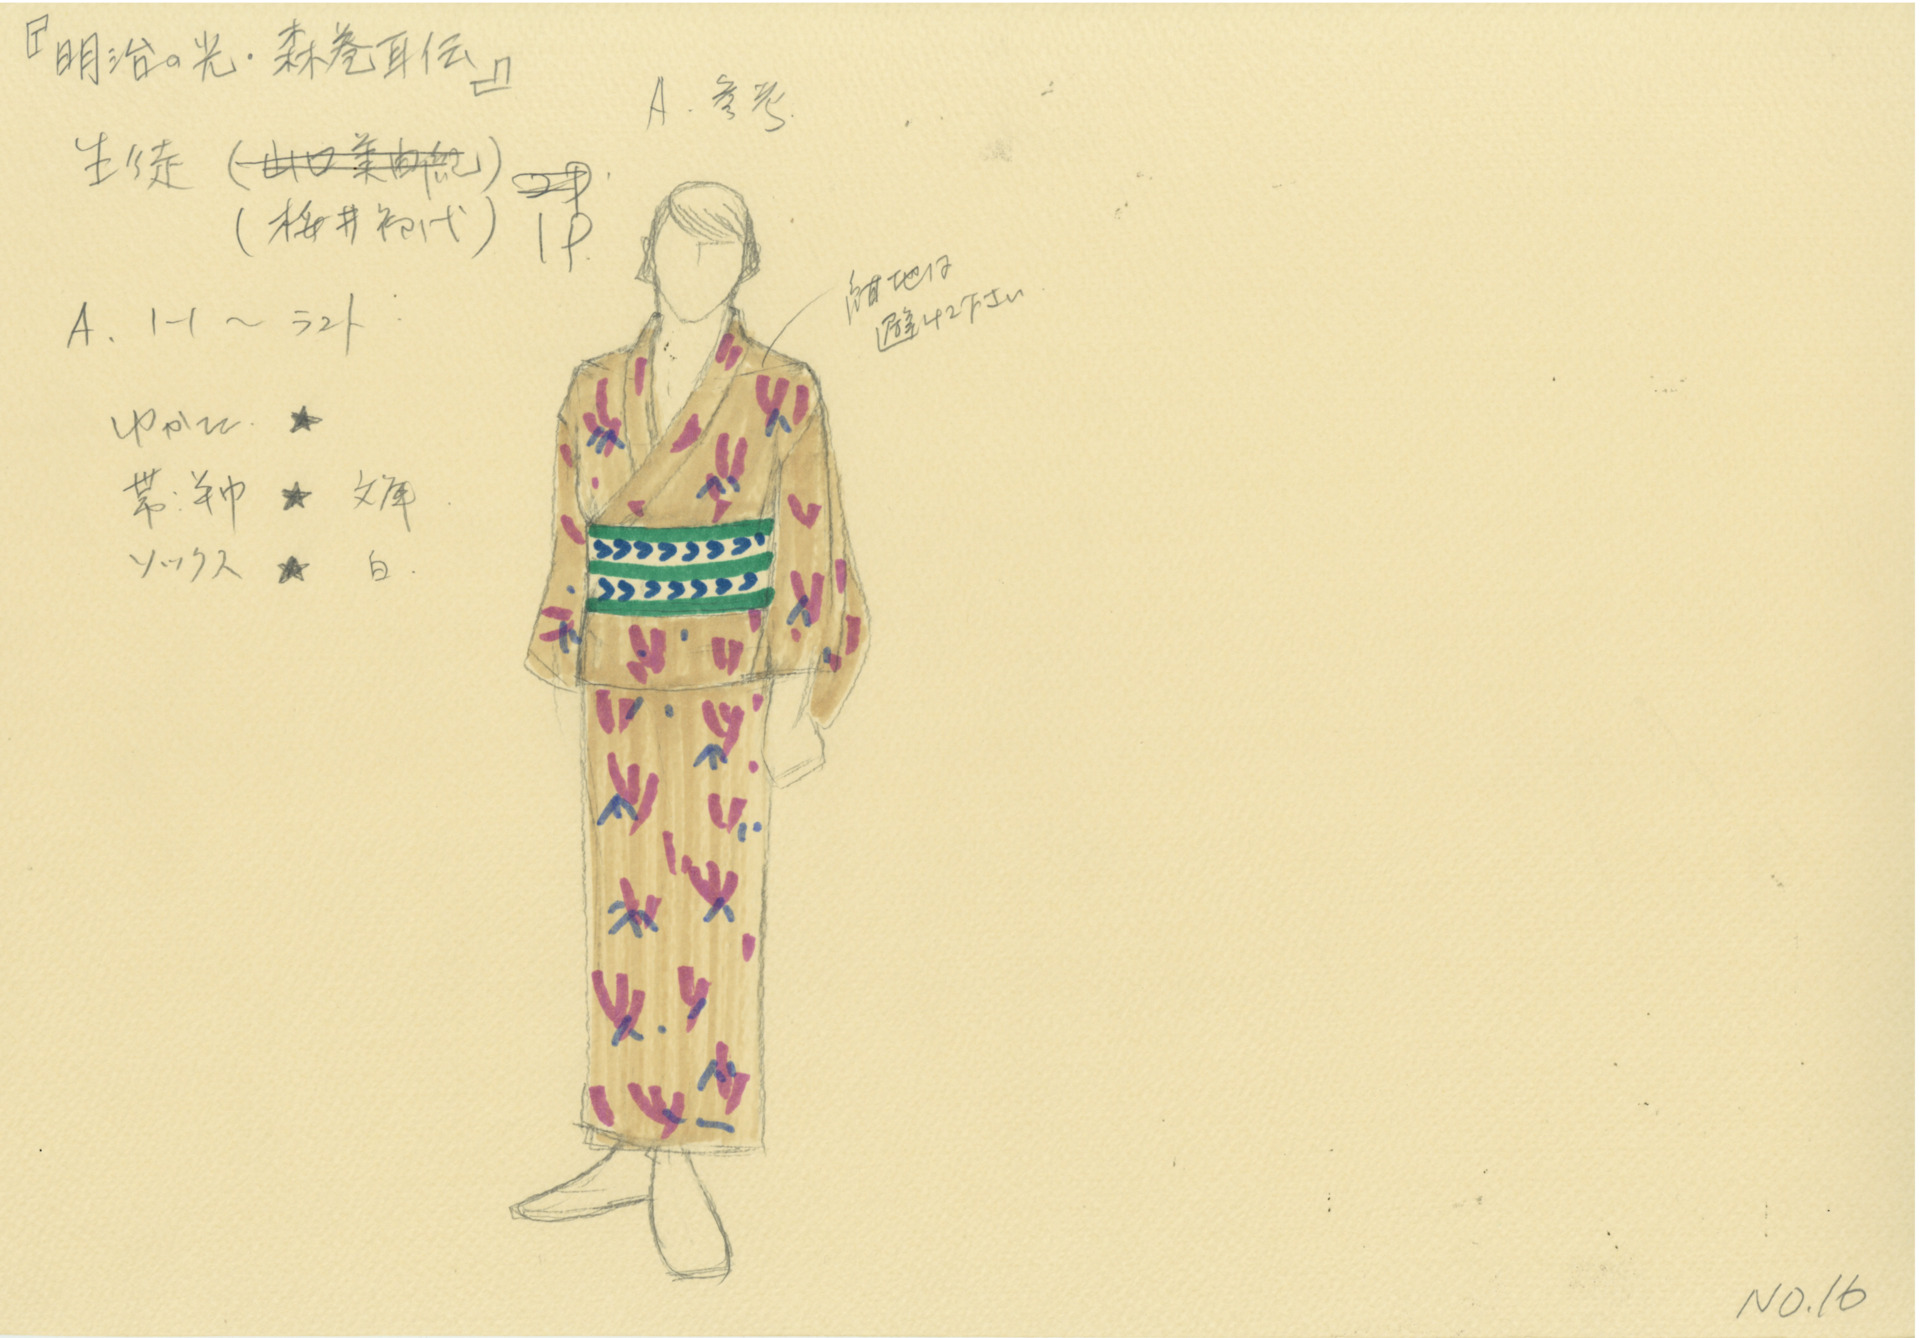 『明治の光・森巻耳伝』
A. 参考
生徒 (山口菜由紀)
(梅井初代) 1P
A. 1-1 〜 ラスト
紺地は
避けて下さい
ゆかた ★
帯:半巾 ★ 文庫
ソックス ★ 白
NO.16